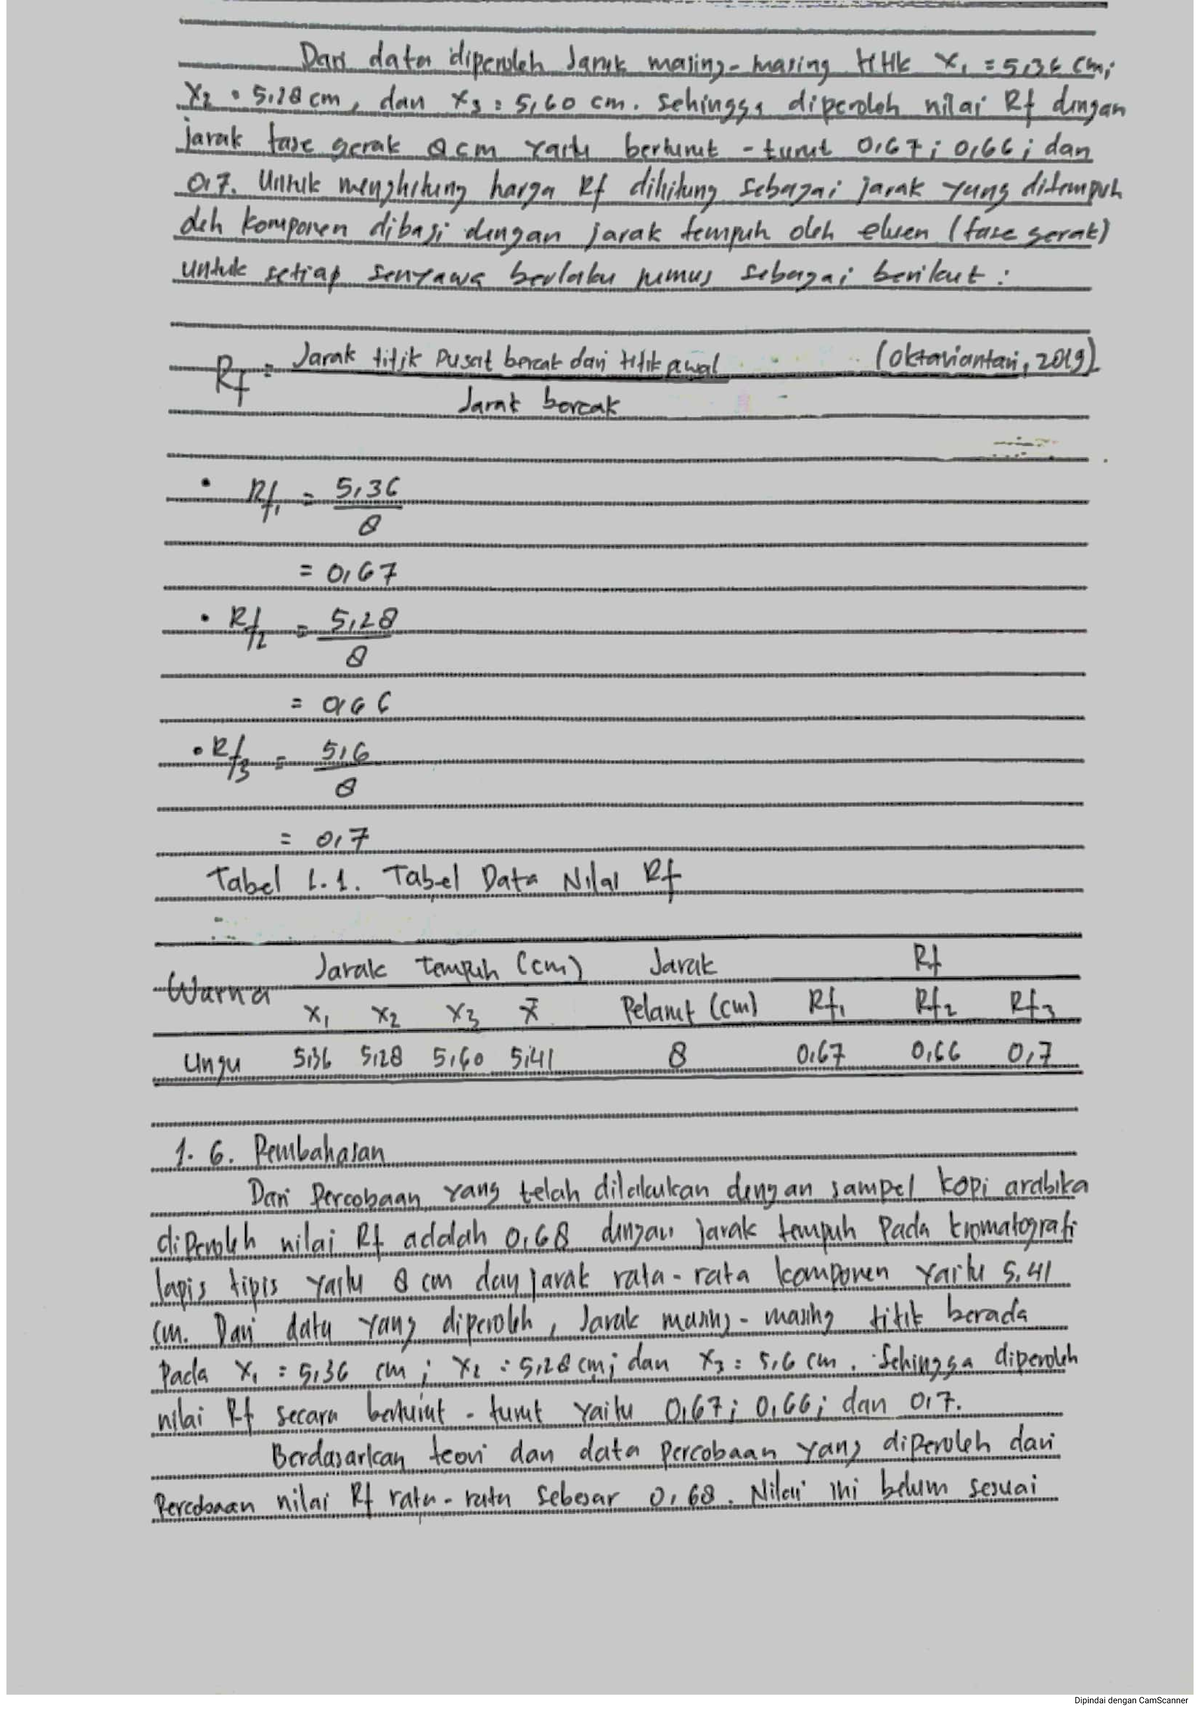 Dari data diperoleh Jarak masing-masing titik X₁ = 5,36 cm;
X₂ = 5,28 cm, dan X₃ = 5,60 cm. Sehingga diperoleh nilai Rf dengan
jarak fase gerak 8 cm yaitu berturut-turut 0,67; 0,66; dan
0,7. Untuk menghitung harga Rf dihitung sebagai jarak yang ditempuh
oleh komponen dibagi dengan jarak tempuh oleh eluen (fase gerak)
untuk setiap senyawa berlaku rumus sebagai berikut :
Rf = Jarak titik pusat bercak dari titik awal (Oktaviantari, 2019)
Jarak bercak
• Rf₁ = 5,36
8
= 0,67
• Rf₂ = 5,28
8
= 0,66
• Rf₃ = 5,6
8
= 0,7
Tabel 1.1. Tabel Data Nilai Rf
Jarak tempuh (cm) Jarak Rf
Warna X₁ X₂ X₃ x̄ Pelarut (cm) Rf₁ Rf₂ Rf₃
Ungu 5,36 5,28 5,60 5,41 8 0,67 0,66 0,7
1.6. Pembahasan
Dari Percobaan yang telah dilakukan dengan sampel kopi arabika
diperoleh nilai Rf adalah 0,68 dengan jarak tempuh pada kromatografi
lapis tipis yaitu 8 cm dan jarak rata-rata komponen yaitu 5,41
cm. Dari data yang diperoleh, Jarak masing-masing titik berada
pada X₁ = 5,36 cm; X₂ = 5,28 cm; dan X₃ = 5,6 cm. Sehingga diperoleh
nilai Rf secara berturut-turut yaitu 0,67; 0,66; dan 0,7.
Berdasarkan teori dan data percobaan yang diperoleh dari
Percobaan nilai Rf rata-rata sebesar 0,68. Nilai ini belum sesuai
Dipindai dengan CamScanner